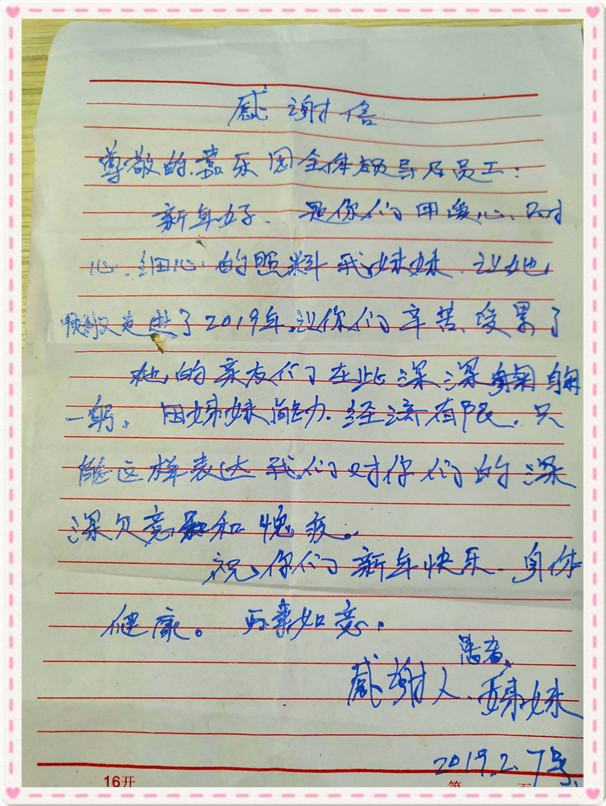 感谢信
尊敬的嘉乐园全体领导及员工:
新年好、是你们用爱心、耐
心、细心的照料我妹妹、让她
顺利又走进了2019年、让你们辛苦、受累了
她的亲友们在此深深鞠
一躬、因姊妹能力、经济有限、只
能这样表达我们对你们的深
深欠意和愧疚。
祝你们新年快乐、身体
健康。万事如意,
感谢人、姊妹
2019.2.7号
16开
第 页